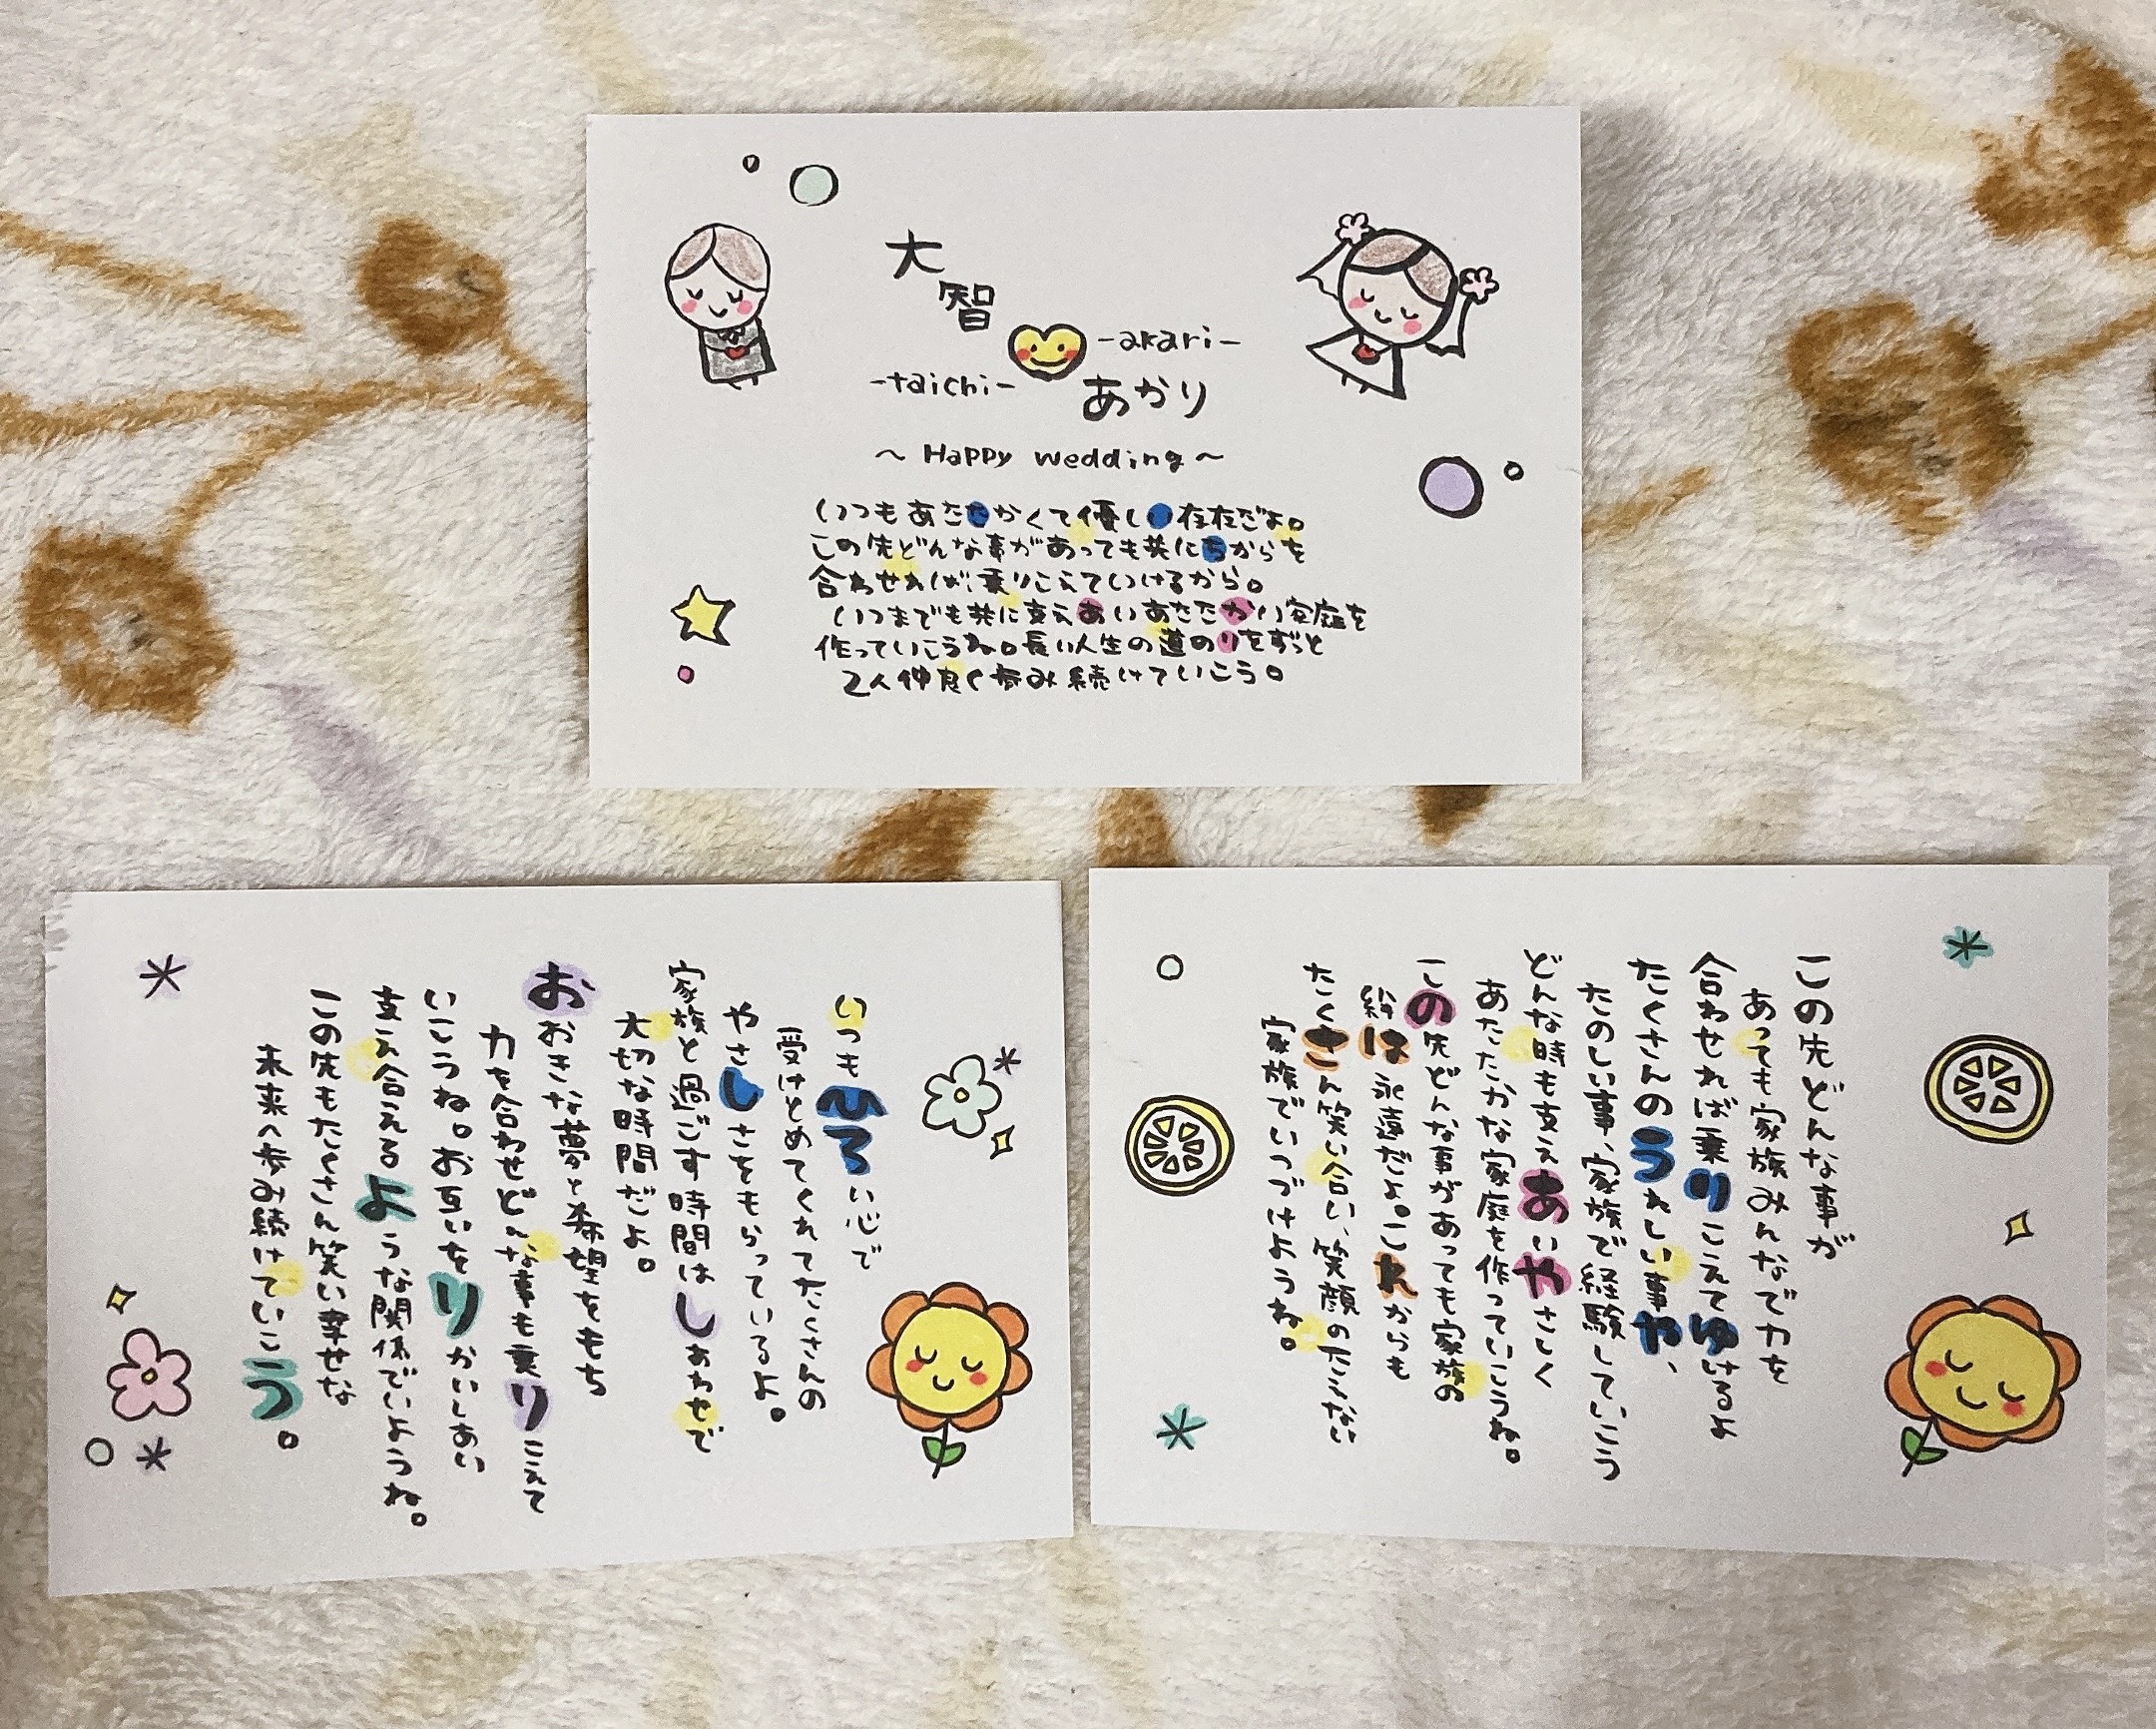 大智
-akari-
-taichi-
あかり
～ Happy wedding ～
いつもあたたかくて優しい存在だよ。
この先どんな事があっても共にちからを
合わせれば、乗りこえていけるから。
いつまでも共に支えあいあたたかい家庭を
作っていこうね。長い人生の道のりをずっと
2人仲良く歩み続けていこう。
いつもひろい心で
受けとめてくれてたくさんの
やさしさをもらっているよ。
家族と過ごす時間はしあわせで
大切な時間だよ。
おおきな夢と希望をもち
力を合わせどんな事も乗りこえて
いこうね。お互いをりかいしあい
支え合えるような関係でいようね。
この先もたくさん笑い幸せな
未来へ歩み続けていこう。
この先どんな事が
あっても家族みんなで力を
合わせれば乗りこえてゆけるよ
たくさんのうれしい事や、
たのしい事、家族で経験していこう
どんな時も支えあいやさしく
あたたかな家庭を作っていこうね。
この先どんな事があっても家族の
絆は永遠だよ。これからも
たくさん笑い合い、笑顔のたえない
家族でいつづけようね。